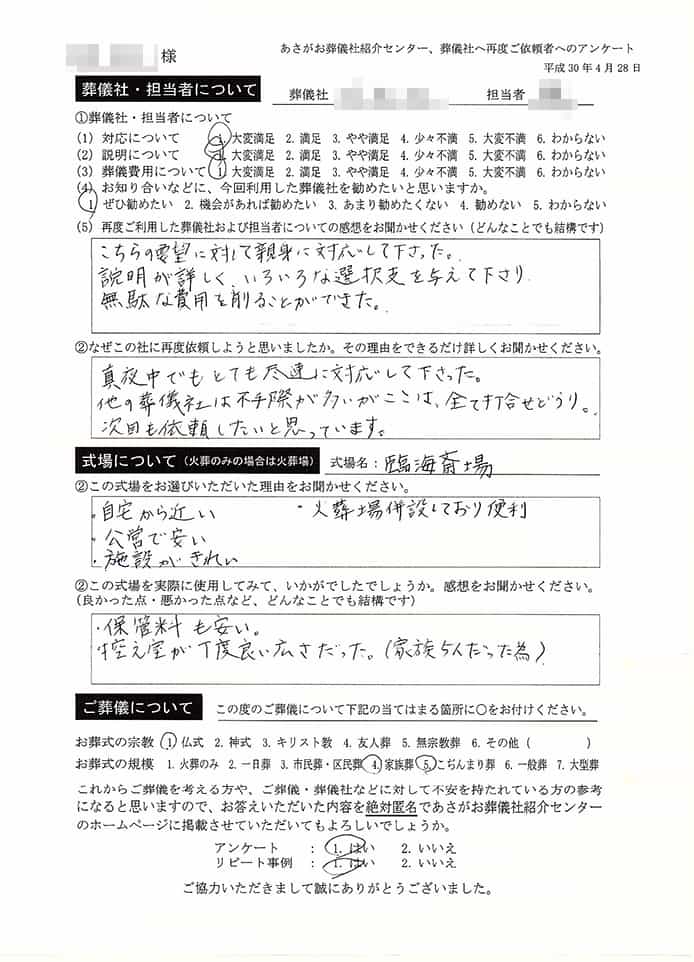 様
あさがお葬儀社紹介センター、葬儀社へ再度ご依頼者へのアンケート
平成30年4月28日
葬儀社・担当者について 葬儀社 担当者
①葬儀社・担当者について
(1) 対応について 1. 大変満足 2. 満足 3. やや満足 4. 少々不満 5. 大変不満 6. わからない
(2) 説明について 1. 大変満足 2. 満足 3. やや満足 4. 少々不満 5. 大変不満 6. わからない
(3) 葬儀費用について 1. 大変満足 2. 満足 3. やや満足 4. 少々不満 5. 大変不満 6. わからない
(4) お知り合いなどに、今回利用した葬儀社を勧めたいと思いますか。
1. ぜひ勧めたい 2. 機会があれば勧めたい 3. あまり勧めたくない 4. 勧めない 5. わからない
(5) 再度ご利用した葬儀社および担当者についての感想をお聞かせください（どんなことでも結構です）
こちらの要望に対して親身に対応して下さった。
説明が詳しく、いろいろな選択支を与えて下さり
無駄な費用を削ることができた。
②なぜこの社に再度依頼しようと思いましたか。その理由をできるだけ詳しくお聞かせください。
真夜中でもとても尽速に対応して下さった。
他の葬儀社は不手際が多いがここは、全て打合せどうり。
次回も依頼したいと思っています。
式場について（火葬のみの場合は火葬場） 式場名：臨海斎場
②この式場をお選びいただいた理由をお聞かせください。
・自宅から近い ・火葬場併設しており便利
・公営で安い
・施設がきれい
②この式場を実際に使用してみて、いかがでしたでしょうか。感想をお聞かせください。
（良かった点・悪かった点など、どんなことでも結構です）
・保管料も安い。
控え室が丁度良い広さだった。（家族5人だった為）
ご葬儀について この度のご葬儀について下記の当てはまる箇所に○をお付けください。
お葬式の宗教 1. 仏式 2. 神式 3. キリスト教 4. 友人葬 5. 無宗教葬 6. その他（ ）
お葬式の規模 1. 火葬のみ 2. 一日葬 3. 市民葬・区民葬 4. 家族葬 5. こぢんまり葬 6. 一般葬 7. 大型葬
これからご葬儀を考える方や、ご葬儀・葬儀社などに対して不安を持たれている方の参考
になると思いますので、お答えいただいた内容を絶対匿名であさがお葬儀社紹介センター
のホームページに掲載させていただいてもよろしいでしょうか。
アンケート ： 1. はい 2. いいえ
リピート事例 ： 1. はい 2. いいえ
ご協力いただきまして誠にありがとうございました。